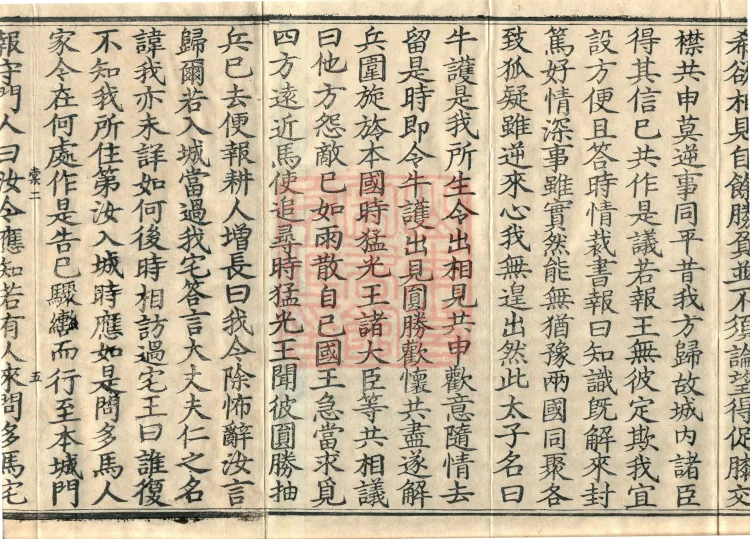 希欲相見自餘勝負並不須論望得促膝交
襟共申莫逆事同平昔我方歸故城內諸臣
得其信已共作是議若報王無彼定欺我宜
設方便且答時情裁書報曰知識旣解來封
篤好情深事雖實然能無猶豫兩國同聚各
致狐疑雖逆來心我無遑出然此太子名曰
牛護是我所生令出相見共申歡意隨情去
留是時即令牛護出見圓勝歡懷共盡遂解
兵圍旋於本國時猛光王諸大臣等共相議
曰他方怨敵已如雨散自已國王急當求覓
四方遠近馬使追尋時猛光王聞彼圓勝抽
兵已去便報耕人增長曰我今除怖辭汝言
歸爾若入城當過我宅答言大丈夫仁之名
諱我亦未詳如何後時相訪過宅王曰誰復
不知我所住第汝入城時應如是問多馬人
家今在何處作是告已驟轡而行至本城門
棠二 五
報守門人曰汝今應知若有人來問多馬宅